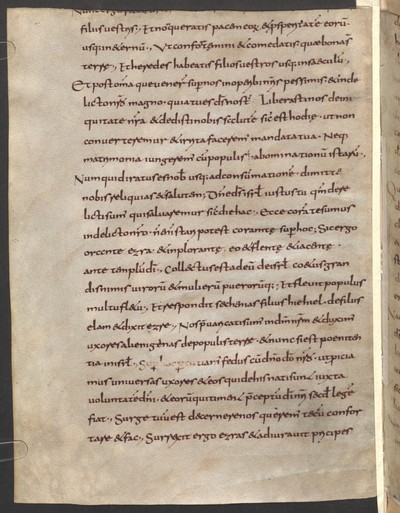 filius uestris. Et non queratis pacem eorum & prosperitatem eorum
usq; in &ernum. Ut confortemini & comedatis quae bona sunt
terrae. Et heredes habeatis filios uestros usq; in saeculum.
Et post omnia que uenerunt super nos in operibus nris pessimis & in de
licto nro magno. quia tu es ds noster Liberasti nos de ini
quitate nra & dedisti nobis salute sic est hodie. ut non
conuerteremur & irrita faceremus mandata tua. Neq;
matrimonia iungeremus cum populis abominationum istarum.
Numquid iratus es nobis usq; ad consummatione. dimitte
nobis reliquias & salutem. Dne ds isrl iustus tu quoniam dere
licti sumus qui saluaremur sic die hac. Ecce coram te sumus
in delicto nro. non enim stari potest coram te super hoc; Sic ergo
orante ezra. & implorante eo & flente & iacente
ante templum di. Collectus est ad eum de isrl co&us gran
dis nimis uirorum & mulierum puerorumq; Et fleuit populus
multo fl&u. Et respondit sechenias filius hiehiel. de filiis
elam & dixit ezrae. Nos preuaricati sumus in dnm nm & duximus
uxores alienigenas de populis terrae. & nunc si est poeniten
tia in isrl. Super hoc percutiamus fedus cum dno do nro. ut proicia
mus uniuersas uxores & eos qui de his nati sunt iuxta
uoluntate dni. & eorum qui timent preceptum di nri secundum lege
fiat. Surge tuum est decernere nos quoq; erimus tecum confor
tare & fac. Surrexit ergo ezras & adiurauit principes